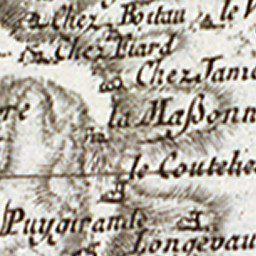 Chez Boitau
le V
Chez Piard
Chez Jam
re
la Maßonn
le Coutelie
Puygirande
Longevau